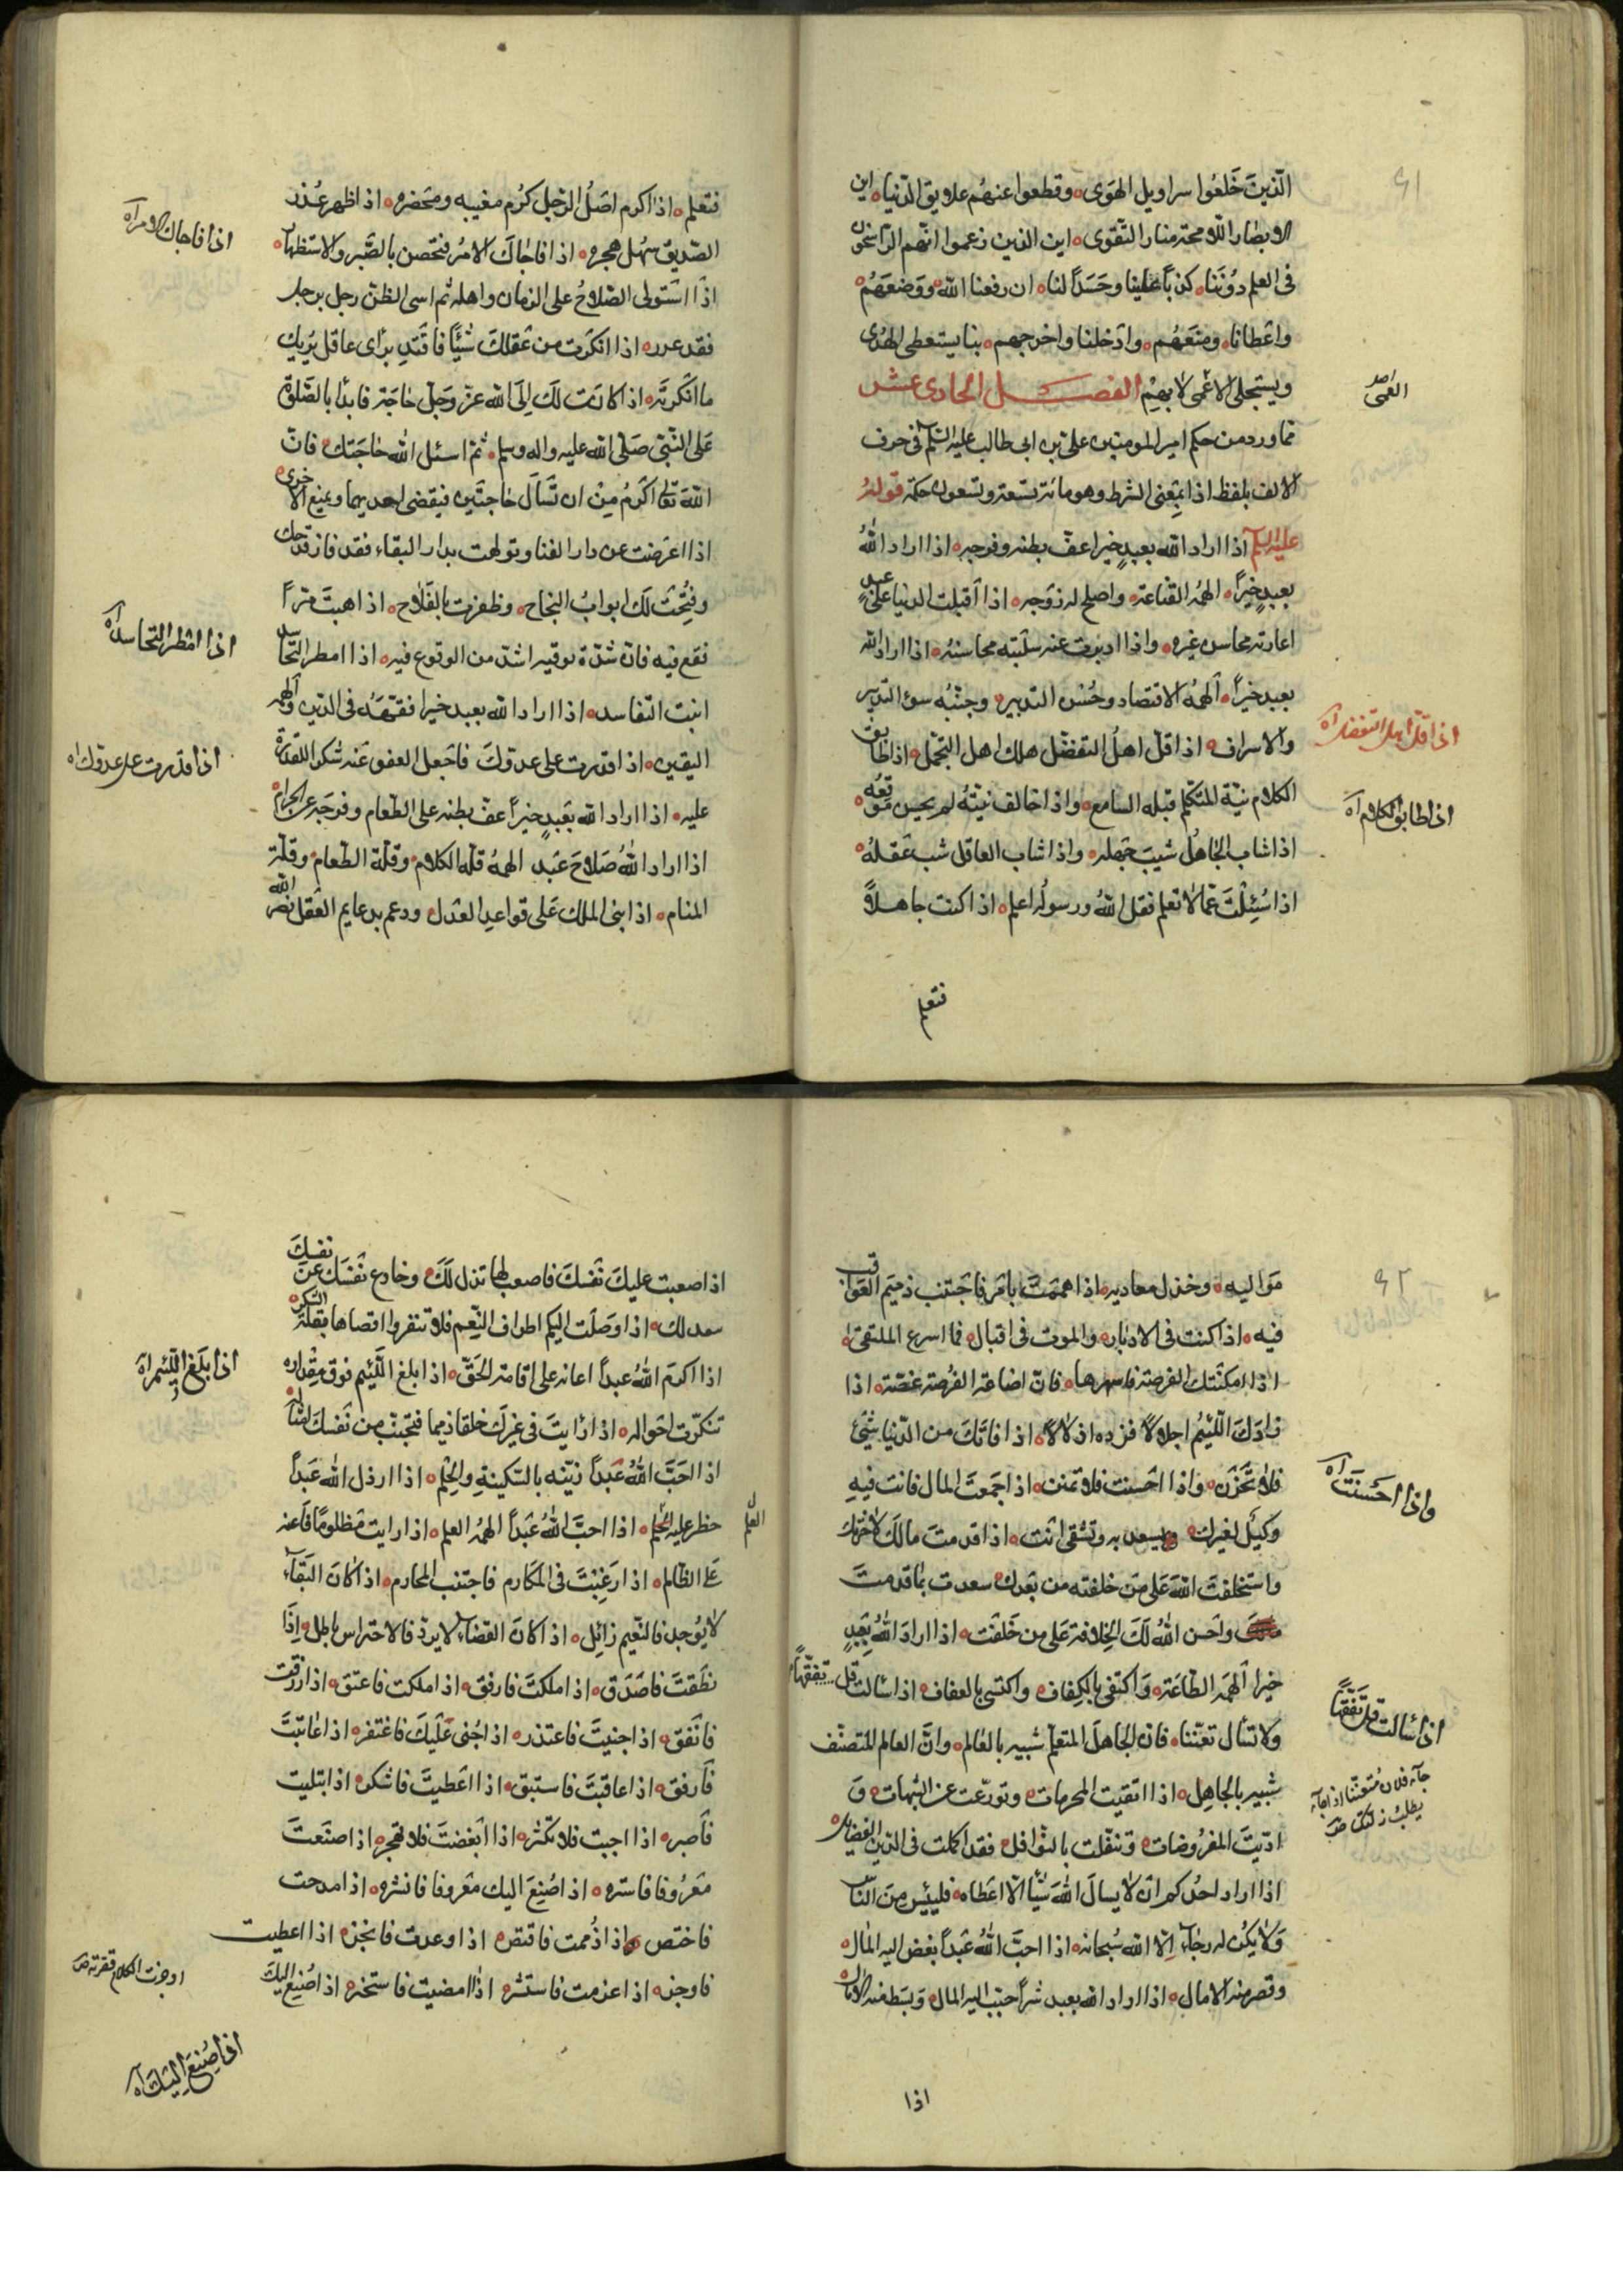 ٤١
الّذينَ خَلَعُوا سراويل الهَوَى وقطعوا عنهُم علايق الدّنيا اين
الابصار اللّامحة منار التّقوى اين الذين زعموا انّهم الرّاسخون
فى العلم دُونَنا كذباً علينا وحَسَداً لنا ان رفعنا اللّه ووضعَهُم
واعطانا ومنعَهُم وادْخلنا واخرجهم بنا يستعطى الهُدى
ويستجلى الاعْمى لا بهِمْ الفصل الحادى عشر
العمى
ممّا ورد من حكم امير المومنين على بن ابى طالب عليه السّلم فى حرف
الالف بلفظ اذا بمعْنى الشرط وهو مائة وتسعة وتسعون حكمة قولهُ
عليه السلم اذا اراد اللّه بعبدٍ خيراً عفّ بطنه وفرجه اذا اراد اللّهُ
بعبدٍ خيراً الهمهُ القناعة واصلح له زوْجه اذا اقبلت الدنيا على عبدٍ
اعارته محاسن غيره واذا ادبرت عنه سلبته محاسنهُ اذا اراد اللّه
بعبدٍ خيراً الهمهُ الاقتصاد وحُسْن التدبير وجنّبهُ سوء التدبير
والاسراف اذا قلّ اهلُ التفضّل هلك اهل التجمّل اذا طابق
اذا قلّ اهل التفضّل اه
الكلام نيّة المتكلّم قبله السامع واذا خالف نيّتهُ لم يحسن موقعُه
اذا طابق الكلام اه
اذا شاب الجاهلُ شيب جهله واذا شاب العاقل شبّ عقلهُ
اذا سُئِلْتَ عمّا لا تعلم فقل اللّهُ ورسولُه اعلم اذا كنت جاهلاً
فتعلم
فتعلم اذا اكرم اصَلُ الرّجل كرُم مغيبه ومحضره اذا ظهر عُذر
الصّديق سهُل هجره اذا فاجاكَ الامرُ فتحصّن بالصّبر والاستظهار
اذا فاجاك الامر اه
اذا استولى الصّلاحُ على الزمان واهله ثم اسى الظنّ رجل برجل
فقد غدر اذا انكرت من عقلكَ شيئاً فاقتدِ برأى عاقل يزيل
ما انكرته اذا كانَت لكَ الَى اللّه عزّ وجلّ حاجَة فابدأ بالصّلوة
عَلى النّبىّ صَلّى اللّه عليه واله وسلم ثمّ اسئل اللّه حاجَتك فانّ
اللّه تعا اكرَمُ مِنْ ان تَسأل حاجتَين فيقضى احديهما ويمنع الاخرى
اذا اعرَضت عن دار الفنا وتولهت بدار البقاء فقد فاز قدحك
وفُتِحَتْ لكَ ابوابُ النجاح وظفرت بالفَلاح اذا هبتَ امراً
فقع فيه فانّ شدّة توقيه اشدّ من الوقوع فيه اذا امطر التّحاسد
اذا امْطر التحاسد اه
انبت التفاسد اذا اراد اللّه بعبد خيرا فقّههُ فى الدّين والهمه
اليقين اذا قدرت على عدوّكَ فاجعل العفو عَنه شكر القدرة
اذا قدرت على عدوّك اه
عليه اذا اراد اللّه بعَبدٍ خيراً عفّ بطنه على الطّعام وفرجَه عن الحرام
اذا اراد اللّهُ صَلاحَ عَبد الهمهُ قلّه الكلام وقلّة الطّعام وقلّة
المنام اذا بنى الملك عَلى قواعدِ العَدل ودعم بدعايم العَقل نصر اللّه
٤٢
مَوَاليه وخذل معاديه اذا هَممتَ بامَر فاجتنب ذميَم العَواقب
فيه اذا كنت فى الادبار والموت فى اقبال فما اسرع الملتقى
اذا امكنَتك الفرصة فانتهزها فانّ اضاعة الفُرصة غصّة اذا
زادَكَ اللّئيُم اجلالاً فزده اذلالاً اذا فاتكَ من الدّنيا شيئ
فلا تَحْزَن واذا احْسنت فلا تمنن اذ اجَمعتَ المال فانت فيهِ
واذا احسَنتَ اه
وكيلُ لغيرك ويسعد به وتشقى انت اذا قدمتَ مالكَ لاخرتك
واستخلفتَ اللّهَ عَلى مَن خلفته من بَعدك سعدت بما قدمتَ
واحسن اللّهُ لكَ الخلافة عَلى من خَلفْت اذا ارادَ اللّهُ بِعَبدٍ
خيرا الهمَه الطّاعة وَاكتفى بالكِفاف واكتسى بالعفاف اذا سالت فسل تفقّهاً
اذا سالت فسل تَفقّهاً
ولا تسأل تعنّتا فان الجاهلَ المتعلّم شبيه بالعَالم وانَّ العالم المتصنّف
شبيه بالجاهِل اذا اتقيت المحرمات وتورّعت عن الشبهات وَ
جآء فلان مُتعنّتا اذا جآء
يطلب زلتك صَحَ
ادّيتَ المفرُوضات وتنفّلت بالنوّافل فقد اكملت فى الدّين الفضايل
اذا اراد احدُكم ان لا يسالَ اللّهَ شيئاً الّا اعطاه فلييئس مِنَ النّاس
وَلا يكُن له رجاء الّا اللّه سُبحانه اذا احبَّ اللّهُ عَبداً بغض اليه المال
وقصر منه الامال اذا اراد اللّه بعبد شراً حبّب اليه المال وَبسَط منه الامال
اذا
اذا صعبت عليكَ نفْسكَ فاصعب لها تذل لكَ وخادع نفْسَك عن نفسِكَ
اذا وصَلَت اليكم اطراف النّعِم فلا تنفروا اقصاها بقلّة الشكر
اذا اكرمَ اللّهُ عبداً اعانه على اقامة الحَقّ اذا بلغ اللّئيم فوق مِقْداره
اذا بلَغ اللّئيم اه
تنكرّت احواله اذا رايتَ فى غيرك خلقا ذميما فتجنّبْ من نَفسكَ امثاله
اذا احَبَّ اللّهُ عَبداً زيّنه بالسّكينةِ والحِلم اذا ارذل اللّه عَبداً
حظر عليه العلم اذا احبَّ اللّهُ عَبْداً الهمهُ العلم اذا رايت مَظلوماً فاَعنه
العلم
عَلَى الظّالم اذا رَغِبْتَ فى المكارم فاجتنب المحارم اذا كانَ البَقآء
لا يُوجد فالنّعيم زائِل اذا كانَ القضآء لا يردّ فالاحتراس باطل اِذَا
نطَقتَ فاصَدَق اذا ملكتَ فارفق اذا ملكت فاعتق اذا رزقت
فانَفق اذا جنيتَ فاعتذر اذا جُنى عَليكَ فاغتفر اذا عاتبَتَ
فَارفق اذا عاقبَتَ فاستبق اذا اعَطيتَ فاشكر اذا ابتليت
فاَصبر اذا احببَت فلا تكثر اذا ابغضتَ فلا تهجر اذا صنَعتَ
مَعرُوفا فاستره اذا صُنِعَ اليك مَعروفا فانشره اذا مدحت
فاختصر واذا ذَممت فاقتصر اذا وعدت فانجز اذا اعطيت
فاوجز اذا عزمت فاستشر اذا امضيت فاستخر اذا صُنِعَ اليكَ
اوجزت الكلام قصرته صَ
اذا صُنِعَ اليكَ اه